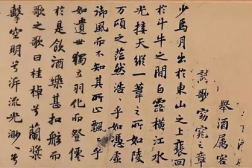 舉酒屬客
窈窕之章
少焉月出於東山之上裵回
於斗牛之間白露橫江水
光接天縱一葦之所如陵
萬頃之茫然浩〻乎如憑虛
御風而不知其所止飄〻乎
如遺世獨立羽化而登僊
於是飲酒樂甚扣舷而
歌之歌曰桂棹兮蘭槳
擊空明兮泝流光渺〻兮